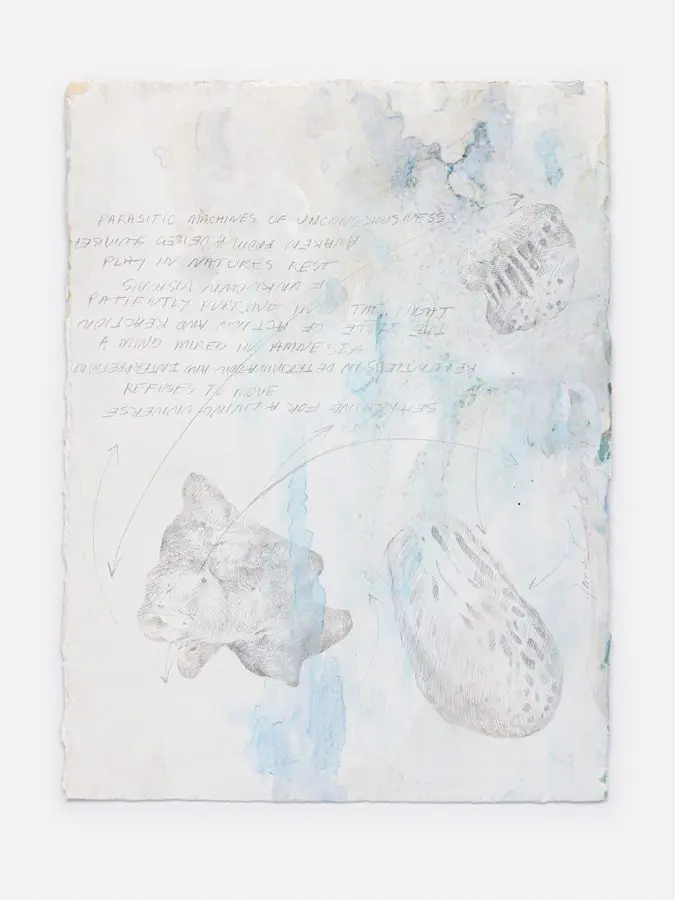 PARASITIC MACHINES OF UNCONSCIOUSNESS
AWAKEN FROM A VEILED
PLAY IN NATURES REST
OF UNKNOWN VISIONS
PATIENTLY THE NIGHT
THE OF ACTION AND REACTION
A MIND MIRED IN AMNESIA
RELENTLESS IN DETERMINATION AND
REFUSES TO MOVE
SEARCHING FOR A LIVING UNIVERSE